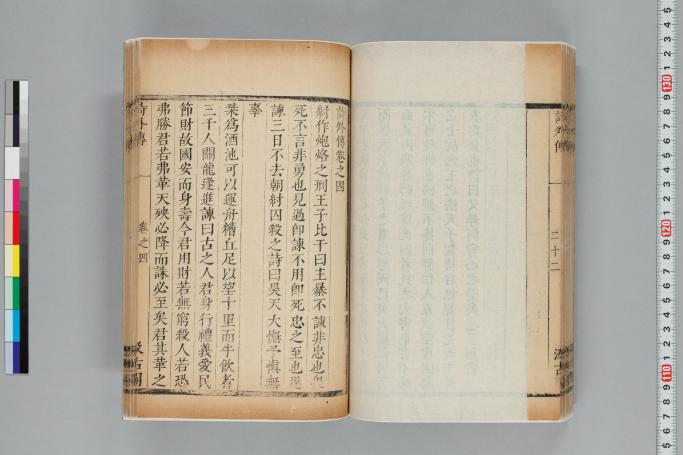 詩外傳卷之四
紂作炮烙之刑王子比干曰主暴不諫非忠也畏
死不言非勇也見過卽諫不用卽死忠之至也遂
諫三日不去朝紂囚殺之詩曰昊天大憮予慎無
辜
桀爲酒池可以運舟糟丘足以望十里而牛飲者
三千人關龍逄進諫曰古之人君身行禮義愛民
節財故國安而身壽今君用財若無窮殺人若恐
弗勝君若弗革天殃必降而誅必至矣君其革之
詩外傳
卷之四
汲古閣
詩外傳
二十二
汲古